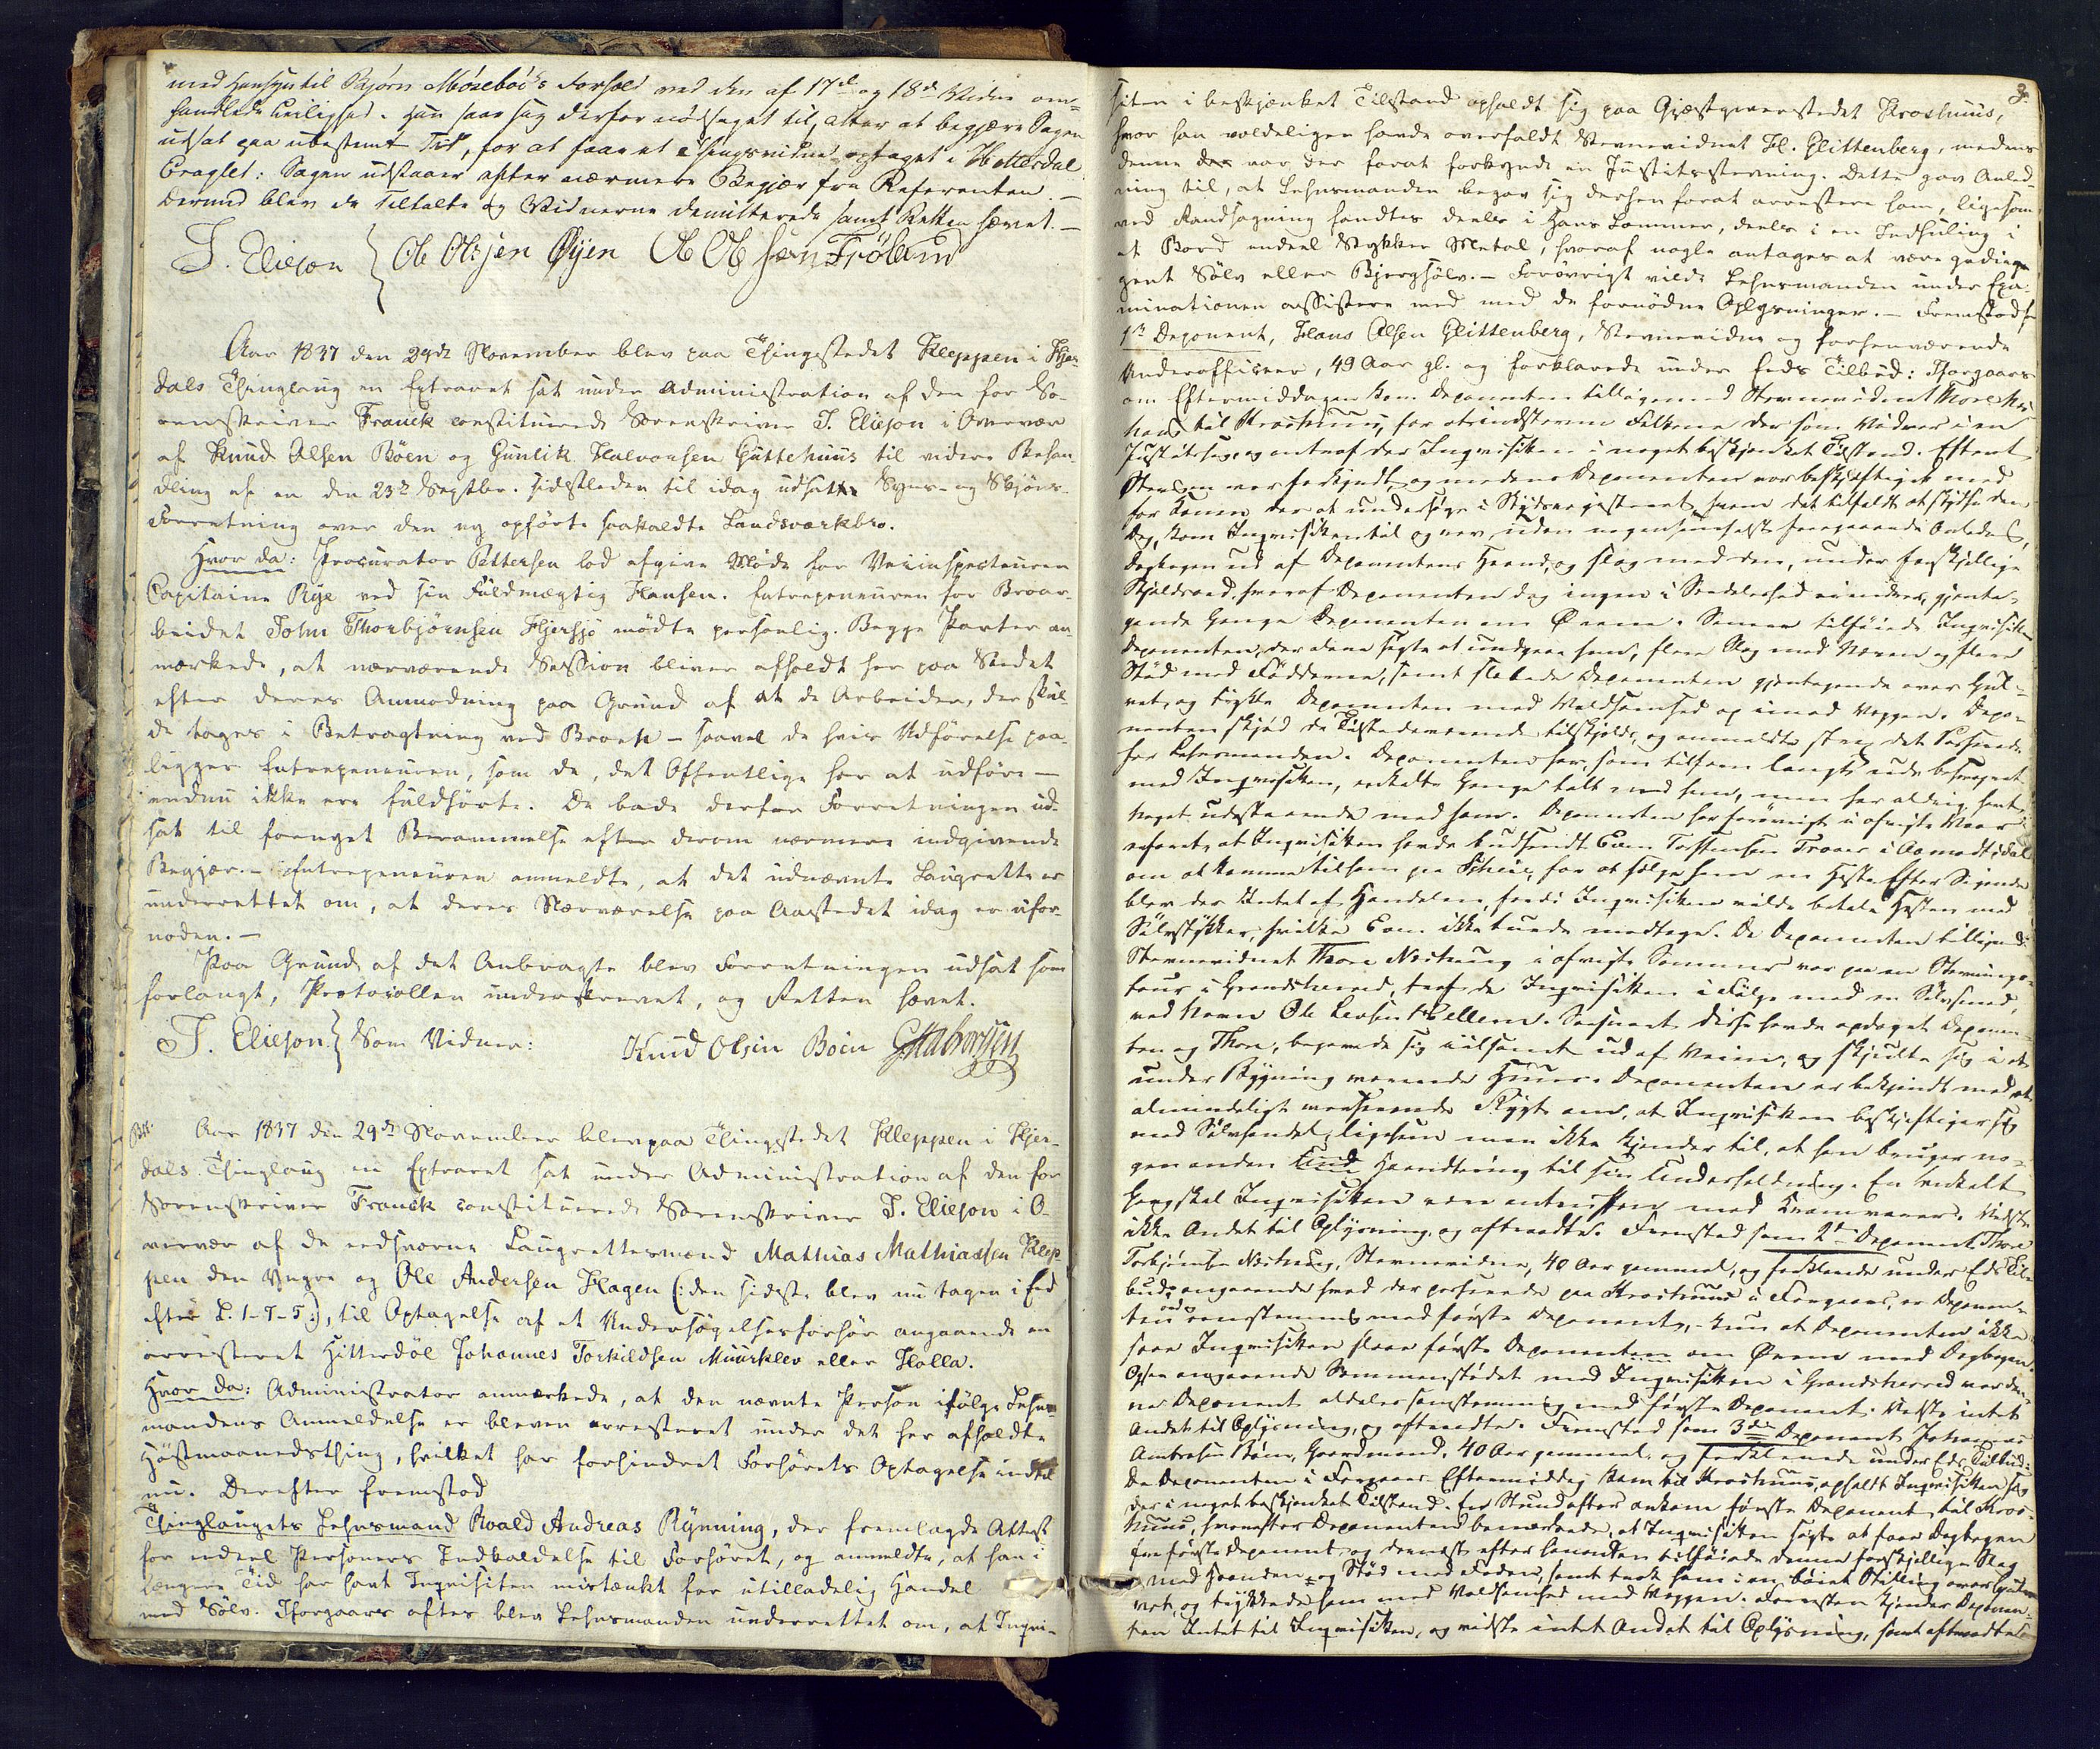 med Hensyn til Bjørn Mórebóe's Forhold ved den af 17de og 18de Vidne om-
handlede Leilighed. Han saae sig derfor nödsaget til, atter at begjære Sagen
udsat paa ubestemt Tid, for at faae et Thingsvidne optaget i Hitterdal
Eragtet: Sagen udstaaer efter nærmere Begjær fra Referenten. —
Derved blev de Tiltalte og Vidnerne demitterede samt Retten hævet. —
J. Elieson } Ole Olsen Øyen Ole Olsen Frøland
Aar 1837 den 29de November blev paa Thingstedet Kleppen i Hjer-
dals Thinglaug en Extraret sat under Administration af den for So-
renskriver Franck constituerede Sorenskriver J. Elieson i Overvær
af Knud Olsen Böen og Gunlik Halvorsen Guttehuus til videre Behan-
dling af en den 23de Septbr. sidstleden til idag udsatte Syns- og Skjöns-
Forretning over den ny opförte saakaldte Landsværkbro.
Hvor da: Procurator Pettersen lod afgive Möde for Veiinspecteuren
Capitaine Rye ved sin Fuldmægtig Hansen. Entrepeneuren for Broar-
beidet John Thorbjörnsen Hjersjö mödte personlig. Begge Parter an-
mærkede, at nærværende Session bliver afholdt her paa Stedet
efter deres Anmodning paa Grund af at de Arbeider, der skul-
de tages i Betragtning ved Broen — saavel de hvis Udförelse paa-
ligger Entrepeneuren, som de, det Offentlige har at udföre —
endnu ikke ere fuldförte. De bade derfor Forretningen ud-
sat til forenget Berammelse efter derom nærmere indgivende
Begjær. — Entrepeneuren anmeldte, at det udnævnte Laugrette er
underrettet om, at deres Nærværelse paa Aastedet idag er ufor-
noden. —
Paa Grund af det Anbragte blev Forretningen udsat som
forlangt, Protocollen underskrevet, og Retten hævet.
J. Elieson } Som Vidner: Knud Olsen Böen GHalvorsen
Aar 1837 den 29de November blev paa Thingstedet Kleppen i Hjer-
dals Thinglaug en Extraret sat under Administration af den for
Sorenskriver Franck constituerede Sorenskriver J. Elieson i O-
vervær af de eedsvorne Laugrettesmænd Mathias Mathiassen Klep-
pen den Yngre og Ole Andersen Hagen (: den sidste blev nu tagen i Eed
efter L. 1-7-5 :), til Optagelse af et Undersögelsesforhör angaaende en
arresteret Hitterdöl Johannes Torkildsen Muurklev eller Holla.
Hvor da: Administrator anmærkede, at den nævnte Person ifölge Lehns-
mandens Anmeldelse er bleven arresteret under det her afholdte
Höstmaanedsthing, hvilket har forhindret Forhörets Optagelse indtil
nu. Derefter fremstod
Thinglaugets Lehnsmand Roald Andreas Rynning, der fremlagde Attest
for endeel Personers Indkaldelse til Forhöret, og anmeldte, at han i
længere Tid har havt Inqvisiten mistænkt for utilladelig Handel
med Sölv. Iforgaars aftes blev Lehnsmanden underrettet om, at Inqvi-
3.
siten i beskjænket Tilstand opholdt sig paa Gjæstgiverstedet Kroshuus,
hvor han voldeligen havde overfaldt Stevnevidnet H. Glittenberg, medens
denne var der forat forkynde en Justitsstevning. Dette gav Anled-
ning til, at Lehnsmanden begav sig derhen forat arrestere ham, ligesom
ved Randsagning fandtes deels i Hans Lommer, deels i en Indhuling i
et Bord endeel Stykker Metal, hvoraf nogle antages at være gedie-
gent Sölv eller Bjergsölv. — Forövrigt vilde Lehnsmanden under Exa-
minationen assistere med de fornödne Oplysninger. — Fremstod som
1ste Deponent, Hans Olsen Glittenberg, Stevnevidne og forhenværende
Underofficeer, 49 Aar gl. og forklarede under Eeds Tilbud: Iforgaars
om Eftermiddagen kom Deponenten tilligemed Stevnevidnet Thore
til Kroshuus, for at indstevne Folkene der som Vidner i en
Justitssag, og antraf der Inqvisiten i noget beskjænket Tilstand. Efterat
Stevningen var forkyndt og medens Deponenten var beskjæftiget med
for Konen der at undersöge i Skydsregisteret, hvem det tilfaldt at skydse den
Dag, kom Inqvisiten til og rev, uden nogensomhelst foregaaende Anledning,
Dagbogen ud af Deponentens Haand, og slog med den, under forskjellige
Skjeldsord, hvoraf Deponenten dog ingen i Særdeleshed erindrer, gjenta-
gende Gange Deponenten om Ørene. Senere tilföiede Inqvisiten
Deponenten, der alene sögte at undgaae ham, flere Slag med Næven og flere
Stöd med Födderne, samt slæbede Deponenten gjentagende over Gul-
vet, og trykte Deponenten med Voldsomhed op imod Væggen. Depo-
nenten skjöd de Tilstedeværende til Vidne, og anmeldte strax det Passerede
for Lehnsmanden. Deponenten har, som til ham langt ude besvogret
med Inqvisiten, enkelte Gange talt med ham, men har aldrig havt
noget udestaaende med ham. Deponenten har forövrigt i afvigte Vaar
erfaret, at Inqvisiten havde budsendt Even Torstensen Traaer i Aamotsdal
om at komme til ham paa Skeie, for at sælge ham en Hest. Efter Sigende
blev der Intet af Handelen, fordi Inqvisiten vilde betale Hesten med
Sölvstykker, hvilke Even ikke turde modtage. Da Deponenten tilligemed
Stevnevidnet Thore Nestrung i afvigte Sommer var paa en Stevninge-
tour i Grandsherred, traf de Inqvisiten i Fölge med en Sölvsmed,
ved Navn Ole Levsen Kellem. Saasnart disse havde opdaget Deponen-
ten og Thore, begavede sig ilsomt ud af Veien, og skjulte sig i et
under Bygning værende Huus. Deponenten er bekjendt med et
almindeligt verserende Rygte om, at Inqvisiten beskjæftiger sig
med Sölvhandel, ligesom man ikke kjender til, at han bruger no-
gen anden Haandtering til sin Underholdning. En enkelt
Gang skal Inqvisiten være antruffen med Kramvarer. Vidste
ikke Andet til Oplysning og aftraadte. Fremstod som 2den Deponent Thore
Torbjörnsen Nestrung, Stevnevidne, 40 Aar gammel, og forklarede under Eds Til-
bud: angaaende hvad der passerede paa Kroshuus i Forgaars, er Deponen-
ten eenstemmig med förste Deponent, — kun at Deponenten ikke
saae Inqvisiten slaae förste Deponenten om Ørene med Dagbogen.
Ogsaa angaaende Sammenstödet med Inqvisiten i Grandsherred var den-
ne Deponent aldeles samstemmig med förste Deponent. Vidste intet
Andet til Oplysning, og aftraadte. Fremstod som 3die Deponent Johannes
Ambrosen Böen, Gaardmand, 40 Aar gammel, og forklarede under Eds Tilbud:
Da Deponenten i Forgaars Eftermiddag kom til Kroshuus, opholdt Inqvisiten sig
der i noget beskjænket Tilstand. En Stund efter ankom förste Deponent til Kros-
huus, hvorefter Deponenten bemærkede, at Inqvisiten sögte at faae Dagbogen
fra förste Deponent, og dernæst efterhaanden tilföiede denne forskjellige Slag
med Haanden og Stöd med Foden, samt trak ham i en böiet Stilling over Gul-
vet, og trykkede ham med Voldsomhed mod Væggen. Forresten kjender Deponen-
ten Intet til Inqvisiten, og vidste intet Andet til Oplysning, samt aftraadte.